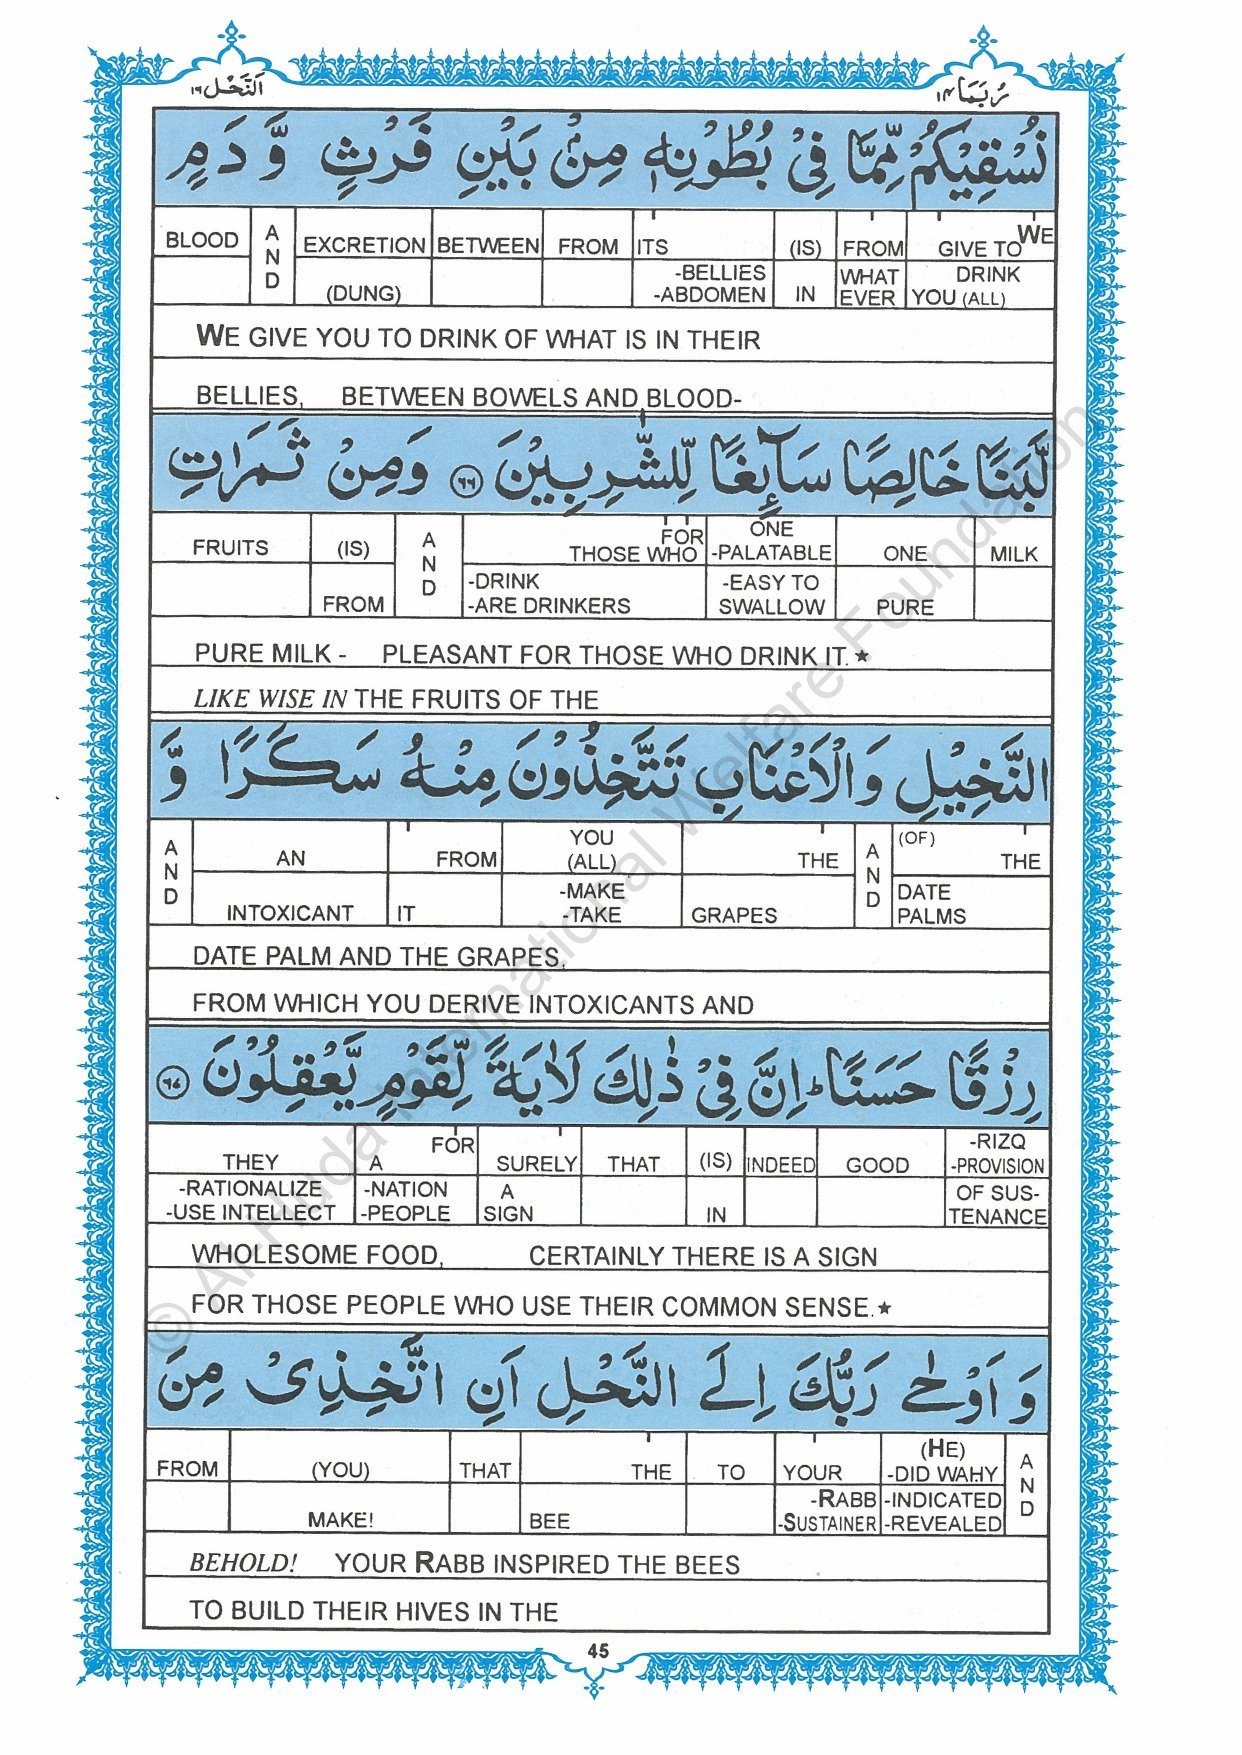 اَلنَّحْل ١٦
رُبَمَا ١٤
نُسْقِيْكُمْ مِّمَّا فِيْ بُطُوْنِهٖ مِنْۢ بَيْنِ فَرْثٍ وَّ دَمٍ
BLOOD AND EXCRETION (DUNG) BETWEEN FROM ITS -BELLIES -ABDOMEN (IS) IN FROM WHAT EVER WE GIVE TO DRINK YOU (ALL)
WE GIVE YOU TO DRINK OF WHAT IS IN THEIR
BELLIES, BETWEEN BOWELS AND BLOOD-
لَّبَنًا خَالِصًا سَآئِغًا لِّلشّٰرِبِيْنَ ٦٦ وَمِنْ ثَمَرٰتِ
FRUITS (IS) FROM AND FOR THOSE WHO -DRINK -ARE DRINKERS ONE -PALATABLE -EASY TO SWALLOW ONE PURE MILK
PURE MILK - PLEASANT FOR THOSE WHO DRINK IT.★
LIKE WISE IN THE FRUITS OF THE
النَّخِيْلِ وَالْاَعْنَابِ تَتَّخِذُوْنَ مِنْهُ سَكَرًا وَّ
AND AN INTOXICANT FROM IT YOU (ALL) -MAKE -TAKE THE GRAPES AND (OF) THE DATE PALMS
DATE PALM AND THE GRAPES,
FROM WHICH YOU DERIVE INTOXICANTS AND
رِزْقًا حَسَنًا ؕ اِنَّ فِيْ ذٰلِكَ لَاٰيَةً لِّقَوْمٍ يَّعْقِلُوْنَ ٦٧
THEY -RATIONALIZE -USE INTELLECT FOR A -NATION -PEOPLE SURELY A SIGN THAT (IS) IN INDEED GOOD -RIZQ -PROVISION OF SUS-TENANCE
WHOLESOME FOOD, CERTAINLY THERE IS A SIGN
FOR THOSE PEOPLE WHO USE THEIR COMMON SENSE.★
وَ اَوْحٰى رَبُّكَ اِلَى النَّحْلِ اَنِ اتَّخِذِىْ مِنَ
FROM (YOU) MAKE! THAT THE BEE TO YOUR -RABB -SUSTAINER (HE) -DID WAHY -INDICATED -REVEALED AND
BEHOLD! YOUR RABB INSPIRED THE BEES
TO BUILD THEIR HIVES IN THE
45
© Al-Huda International Welfare Foundation